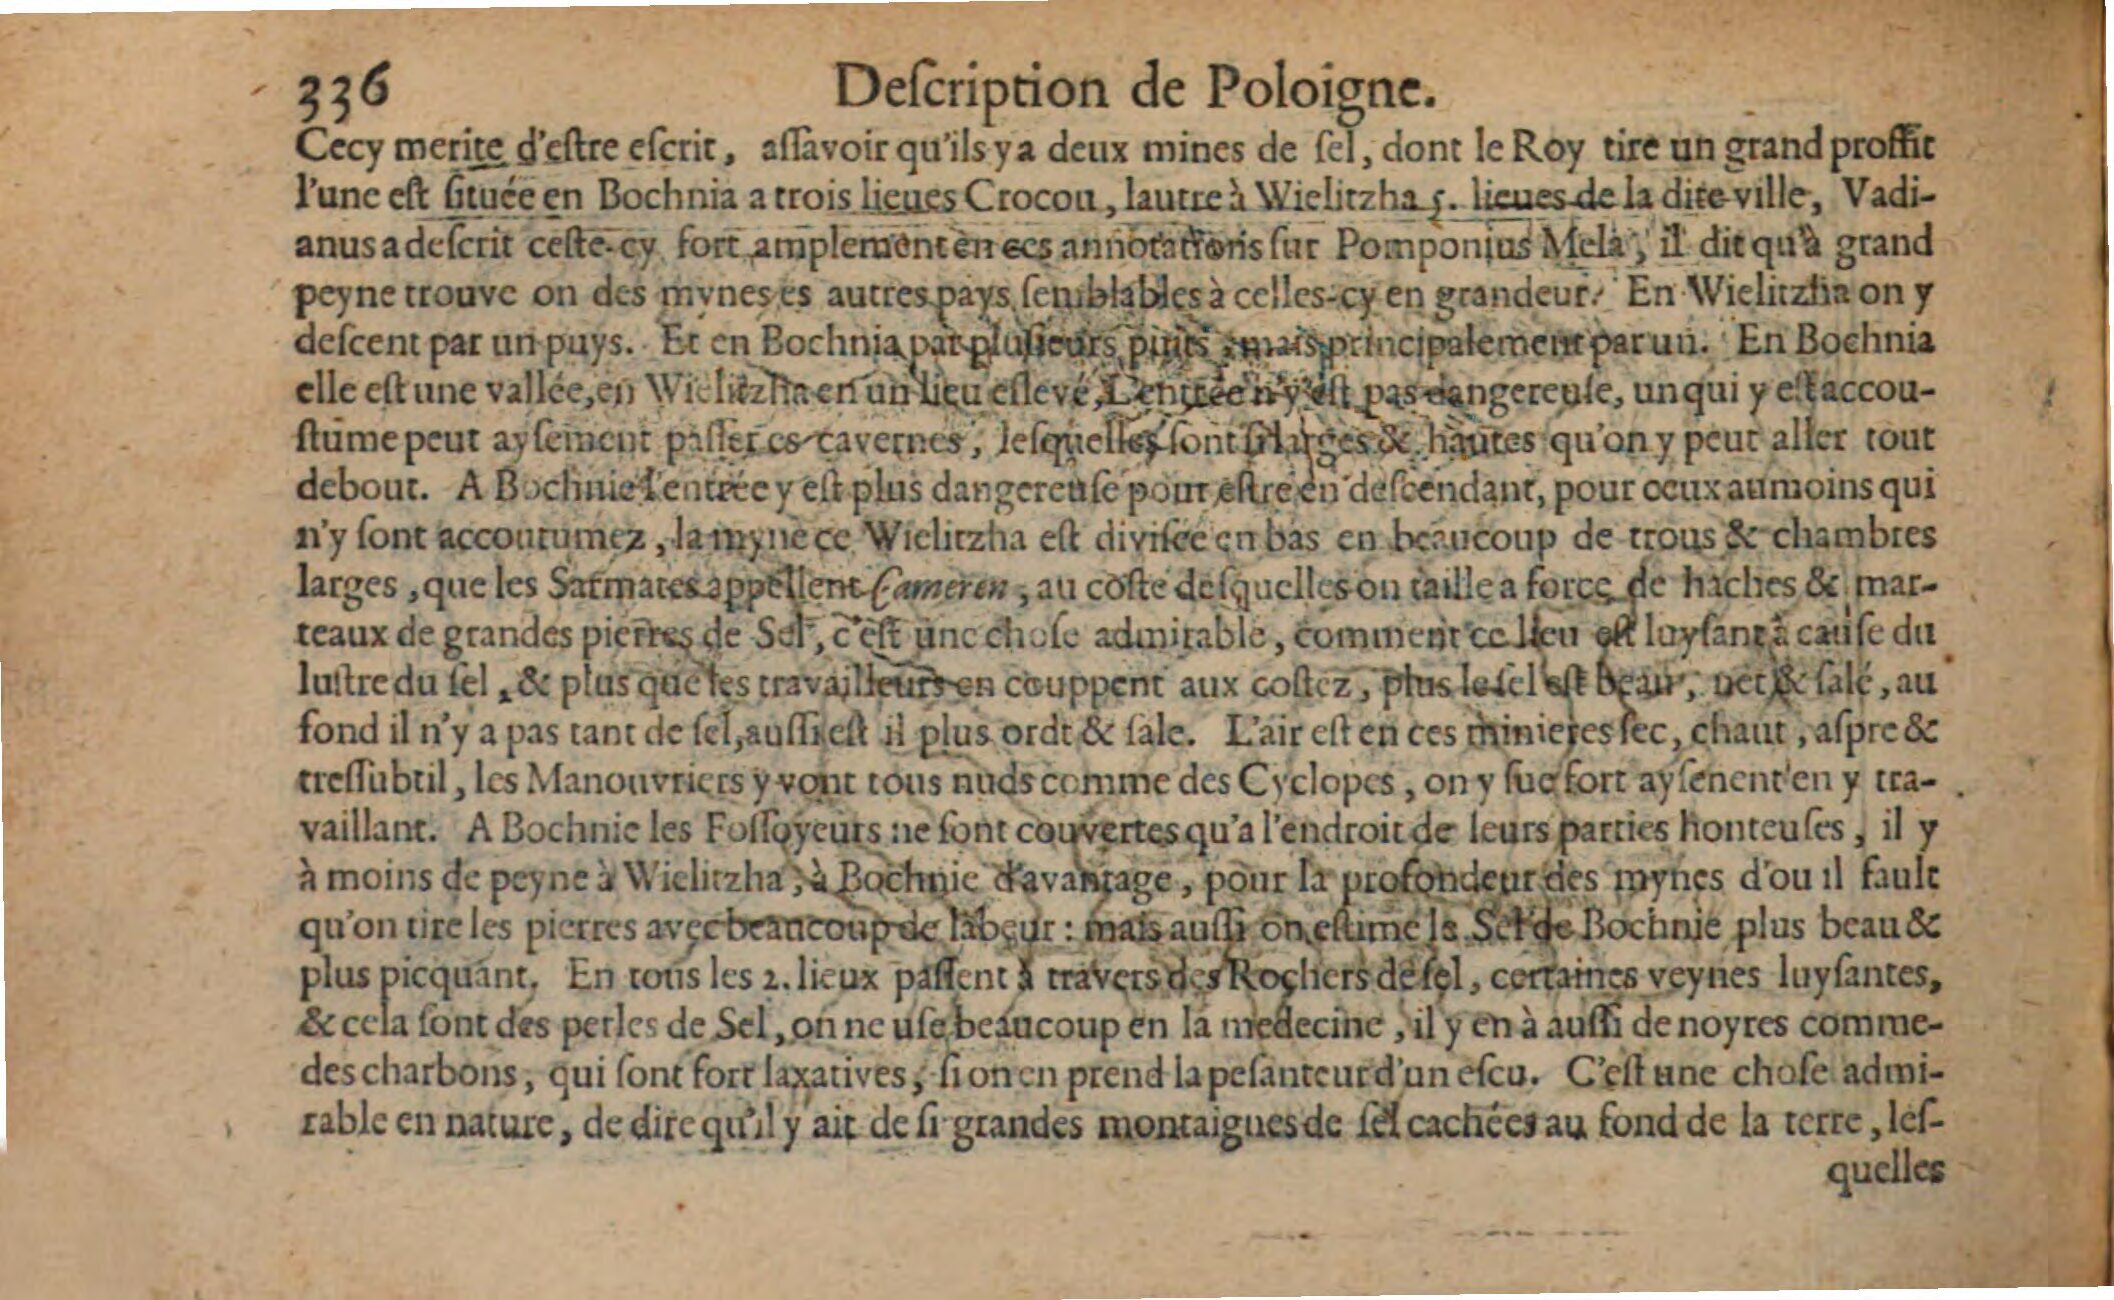 336 Deſcription de Poloigne.
Cecy merite d'eſtre eſcrit, aſſavoir qu'ils y a deux mines de ſel, dont le Roy tire un grand proffit
l'une eſt ſituée en Bochnia a trois lieues Crocou, lautre à Wielitzha 5. lieues de la dite ville, Vadi-
anus a deſcrit ceſte-cy fort amplement en ces annotations ſur Pomponius Mela, il dit qu'à grand
peyne trouve on des mynes es autres pays ſemblables à celles-cy en grandeur. En Wielitzha on y
deſcent par un puys. Et en Bochnia par pluſieurs puits, mais principalement par un. En Bochnia
elle eſt une vallée, en Wielitzha en un lieu eſlevé, L'entrée n'y eſt pas dangereuſe, un qui y eſt accou-
ſtume peut ayſement paſſer es cavernes, leſquelles ſont ſi larges & hautes qu'on y peut aller tout
debout. A Bochnie l'entrée y eſt plus dangereuſe pour eſtre en deſcendant, pour ceux aumoins qui
n'y ſont accoutumez, la myne ce Wielitzha eſt diviſée en bas en beaucoup de trous & chambres
larges, que les Sarmates appellent Cameren, au coſte deſquelles on taille a force de haches & mar-
teaux de grandes pierres de Sel, c'eſt une choſe admirable, comment ce lieu eſt luyſant à cauſe du
luſtre du ſel, & plus que les travailleurs en couppent aux coſtez, plus le ſel eſt beau, net & ſalé, au
fond il n'y a pas tant de ſel, auſſi eſt il plus ordt & ſale. L'air eſt en ces minieres ſec, chaut, aſpre &
treſſubtil, les Manouvriers y vont tous nuds comme des Cyclopes, on y ſue fort ayſenent en y tra-
vaillant. A Bochnie les Foſſoyeurs ne ſont couvertes qu'a l'endroit de leurs parties honteuſes, il y
à moins de peyne à Wielitzha, à Bochnie d'avantage, pour la profondeur des mynes d'ou il fault
qu'on tire les pierres avec beaucoup de labeur : mais auſſi on eſtime le Sel de Bochnie plus beau &
plus picquant. En tous les 2. lieux paſſent à travers des Rochers de ſel, certaines veynes luyſantes,
& cela ſont des perles de Sel, on ne uſe beaucoup en la medecine, il y en à auſſi de noyres comme-
des charbons, qui ſont fort laxatives, ſi on en prend la peſanteur d'un eſcu. C'eſt une choſe admi-
rable en nature, de dire qu'il y ait de ſi grandes montaignes de ſel cachées au fond de la terre, leſ-
quelles